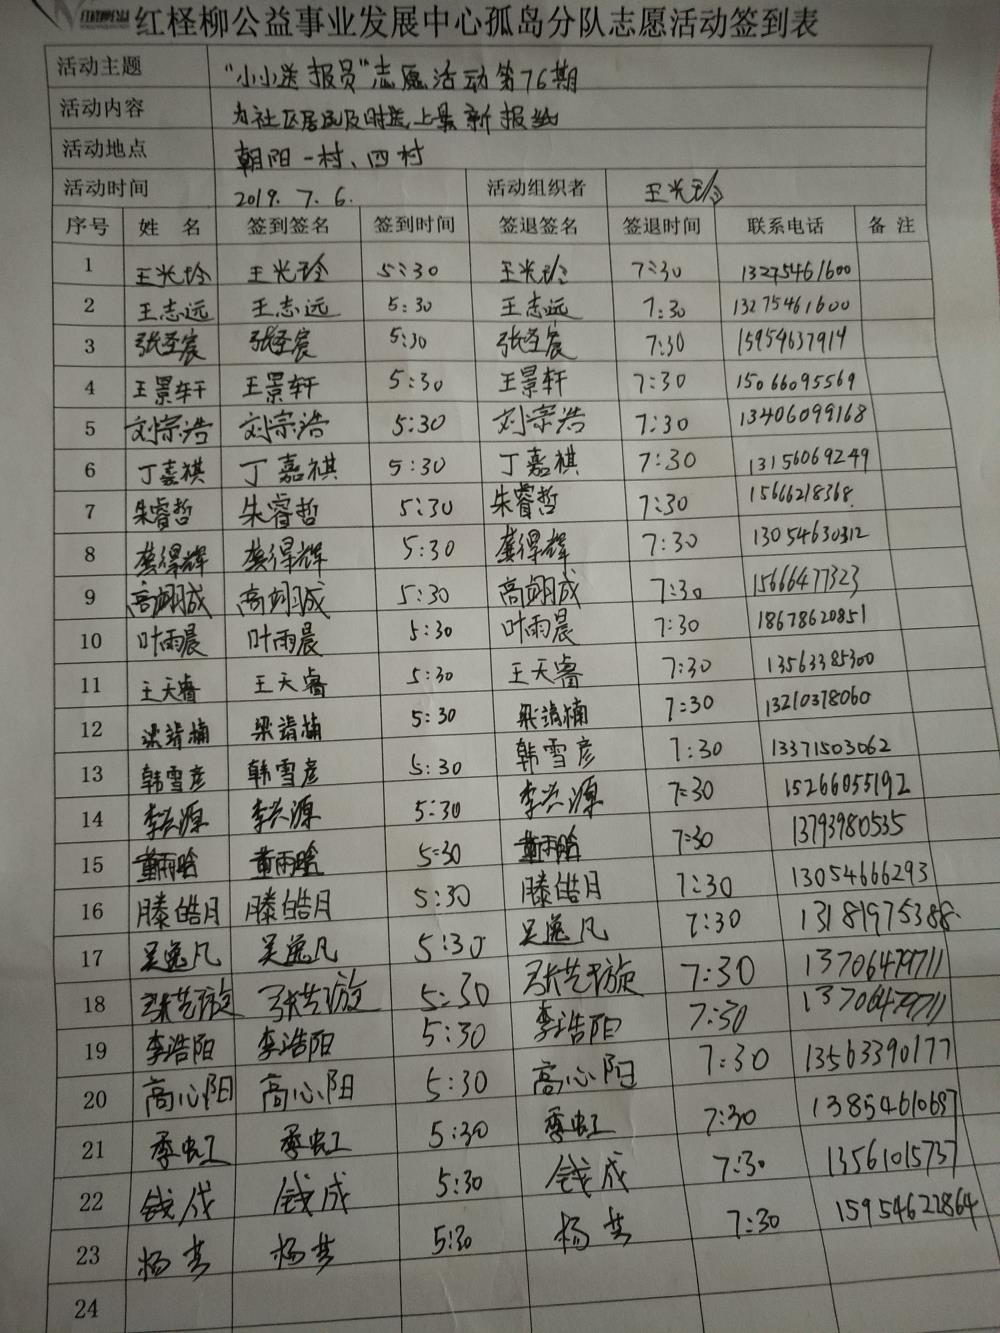 红柽柳公益事业发展中心孤岛分队志愿活动签到表
活动主题 "小小送报员"志愿活动第76期
活动内容 为社区居民及时送上最新报纸
活动地点 朝阳一村、四村
活动时间 2019.7.6. 活动组织者 王光玲
序号 姓名 签到签名 签到时间 签退签名 签退时间 联系电话 备注
1 王光玲 王光玲 5:30 王光玲 7:30 13275461600
2 王志远 王志远 5:30 王志远 7:30 13275461600
3 张圣宸 张圣宸 5:30 张圣宸 7:30 15954637914
4 王景轩 王景轩 5:30 王景轩 7:30 15066095569
5 刘宗浩 刘宗浩 5:30 刘宗浩 7:30 13406099168
6 丁嘉祺 丁嘉祺 5:30 丁嘉祺 7:30 13156069249
7 朱睿哲 朱睿哲 5:30 朱睿哲 7:30 15666218368
8 龚得辉 龚得辉 5:30 龚得辉 7:30 13054630312
9 高翊成 高翊成 5:30 高翊成 7:30 15666477323
10 叶雨晨 叶雨晨 5:30 叶雨晨 7:30 18678620851
11 王天睿 王天睿 5:30 王天睿 7:30 13563385300
12 梁靖楠 梁靖楠 5:30 梁靖楠 7:30 13210378060
13 韩雪彦 韩雪彦 5:30 韩雪彦 7:30 13371503062
14 李兴源 李兴源 5:30 李兴源 7:30 15266055192
15 董雨晗 董雨晗 5:30 董雨晗 7:30 13793980535
16 滕皓月 滕皓月 5:30 滕皓月 7:30 13054666293
17 吴逸凡 吴逸凡 5:30 吴逸凡 7:30 13181975388
18 张艺璇 张艺璇 5:30 张艺璇 7:30 13706479711
19 李浩阳 李浩阳 5:30 李浩阳 7:30 13706479711
20 高心阳 高心阳 5:30 高心阳 7:30 13563390177
21 季虹 季虹 5:30 季虹 7:30 13854610697
22 钱成 钱成 5:30 钱成 7:30 13561015737
23 杨芳 杨芳 5:30 杨芳 7:30 15954622864
24